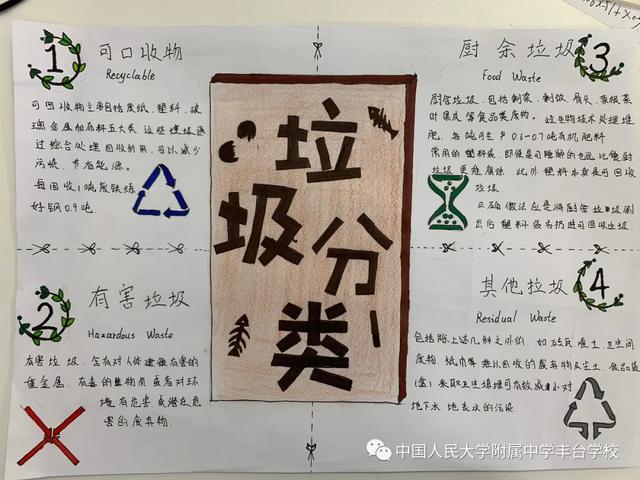 1
可回收物
Recyclable
可回收物主要包括废纸、塑料、玻
璃、金属和布料五大类 这些垃圾通
过综合处理回收利用,可以减少
污染,节省能源。
每回收1吨废钢铁炼
好钢0.9吨
3
厨余垃圾
Food Waste
厨余垃圾,包括剩菜、剩饭、骨头、菜根菜
叶果皮等食品类废物。经生物技术处理堆
肥,每吨可生产0.6-0.7吨有机肥料
常用的塑料袋,即使是可降解的也远比餐厨
垃圾更难腐蚀 此外塑料本身是可回收
垃圾
正确做法应是将厨余垃圾倒
出后塑料袋另扔进可回收垃圾
垃
圾
分
类
2
有害垃圾
Hazardous Waste
有害垃圾,含有对人体健康有害的
重金属、有毒的物质或者对环
境有危害或潜在危
害的废弃物
4
其他垃圾
Residual Waste
包括除上述几种之外的 如砖瓦 渣土 卫生间
废物 纸巾等难以回收的废弃物及尘土、食品袋
(盒) 采取卫生填埋可有效减小对
地下水 地表水的污染
中国人民大学附属中学丰台学校